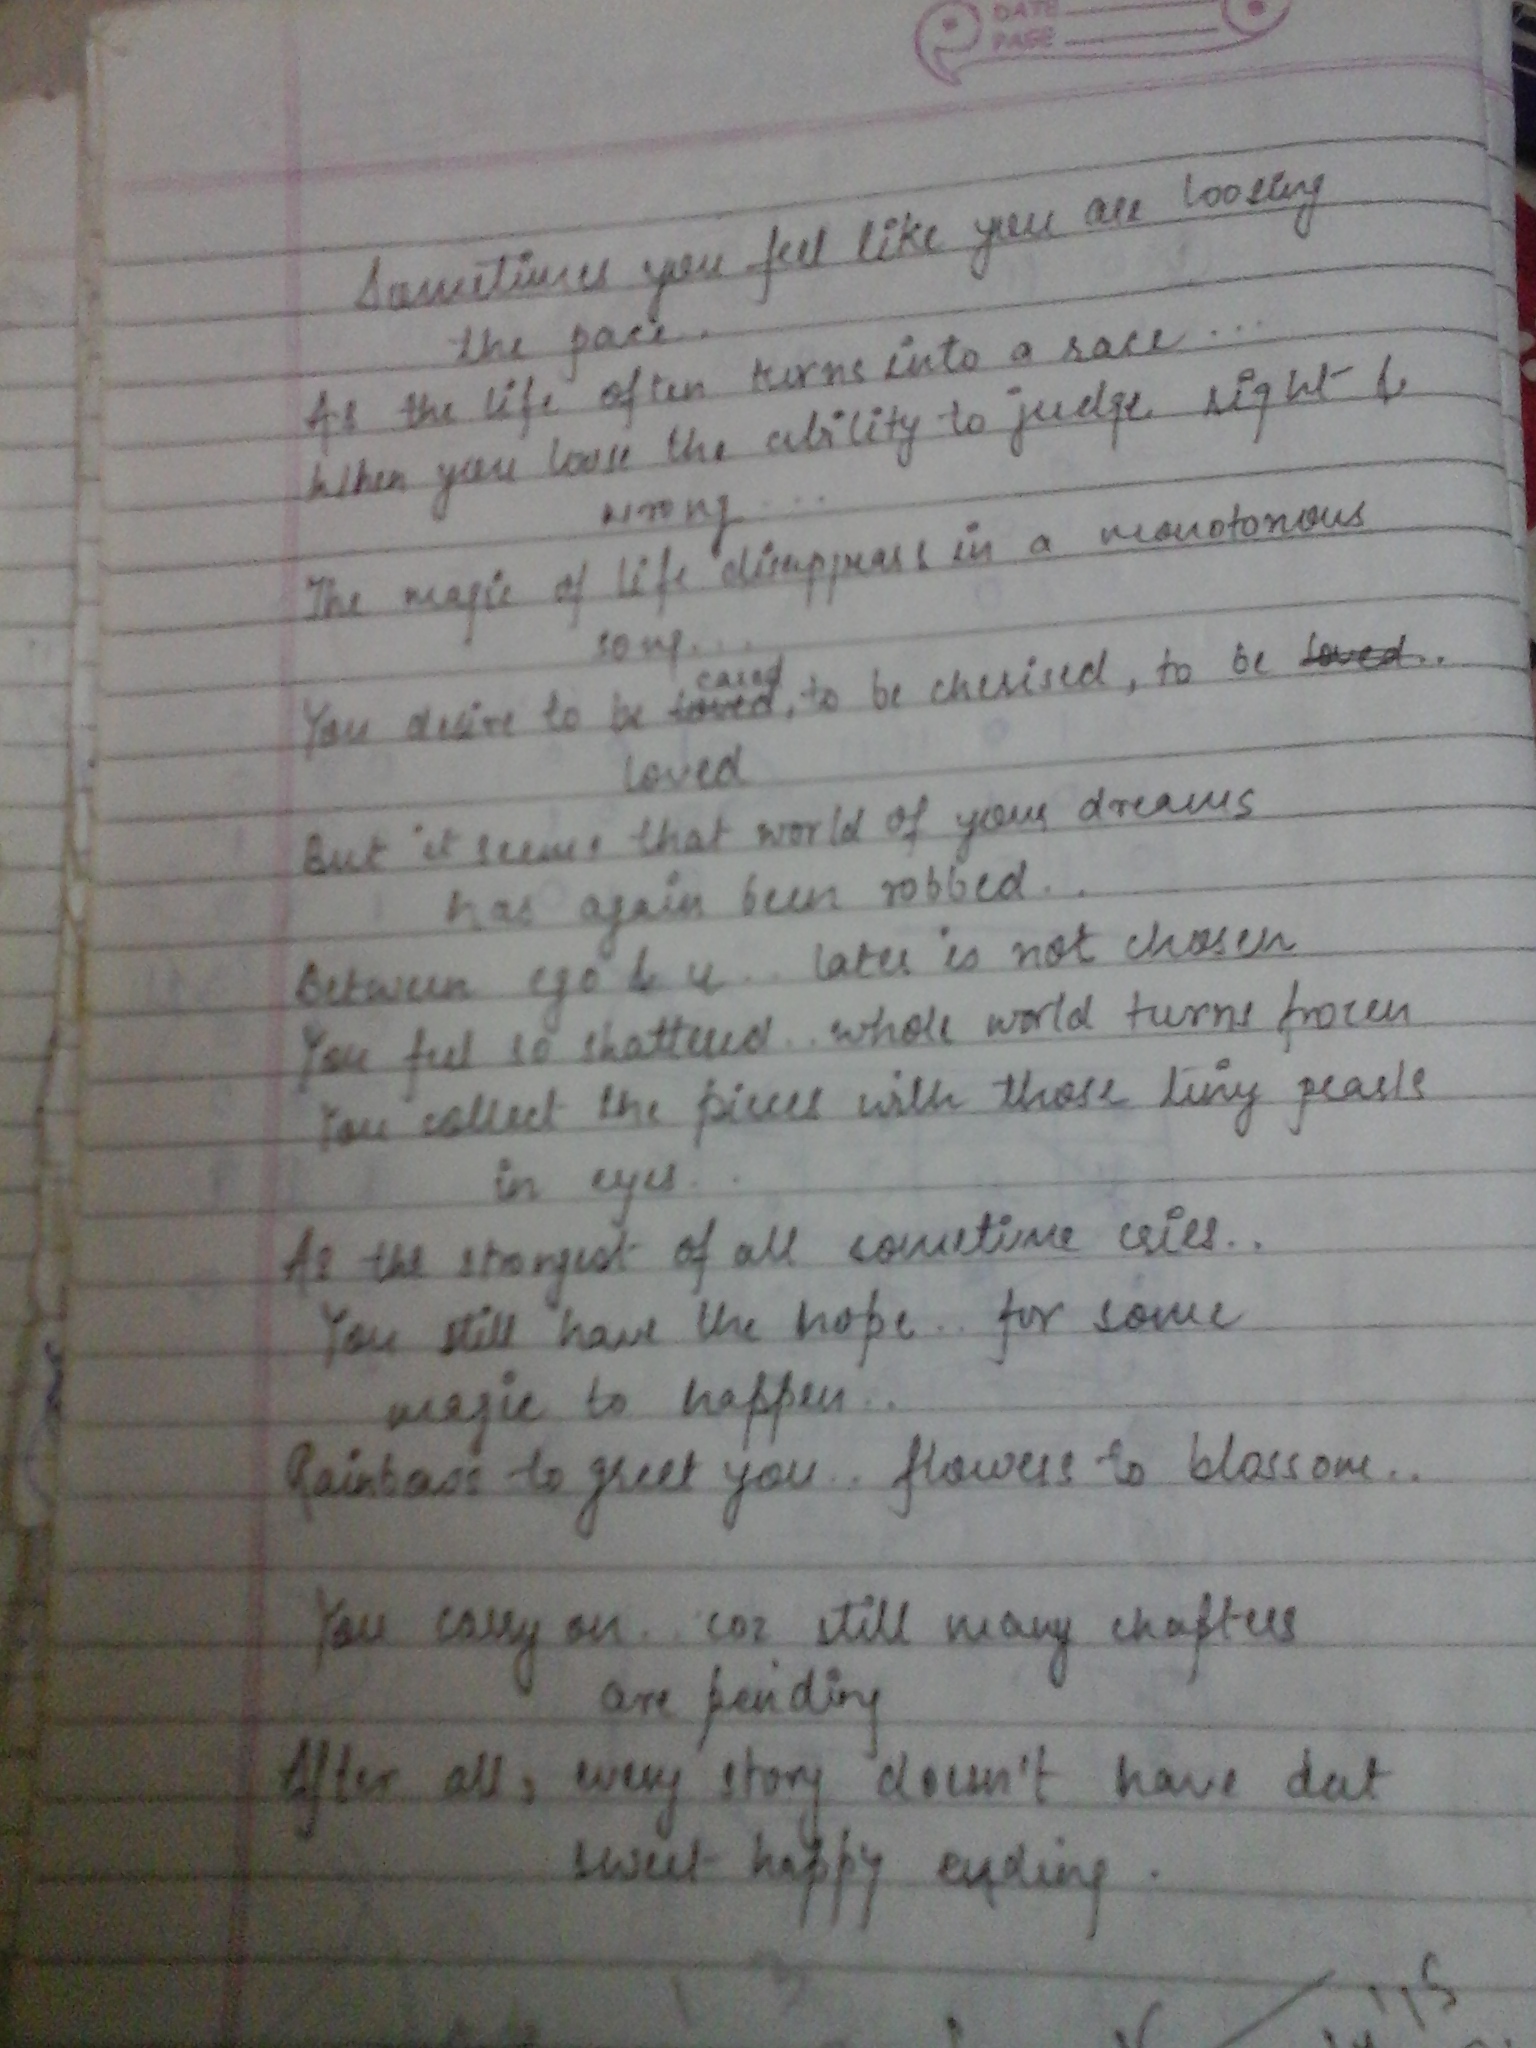 DATE
PAGE
Sometimes you feel like you are loosing
the pace..
As the life often turns into a race ...
When you loose the ability to judge right &
wrong ....
The magic of life disappears in a monotonous
song....
cared
You desire to be loved, to be cherised, to be loved..
loved
But it seems that world of your dreams
has again been robbed..
Between ego & u.. later is not chosen
You feel so shattered.. whole world turns frozen
You collect the pieces with those tiny pearls
in eyes..
As the strongest of all sometime cries..
You still have the hope.. for some
magic to happen..
Rainbows to greet you.. flowers to blossom..
You carry on.. coz still many chapters
are pending
After all, every story doesn't have dat
sweet happy ending.